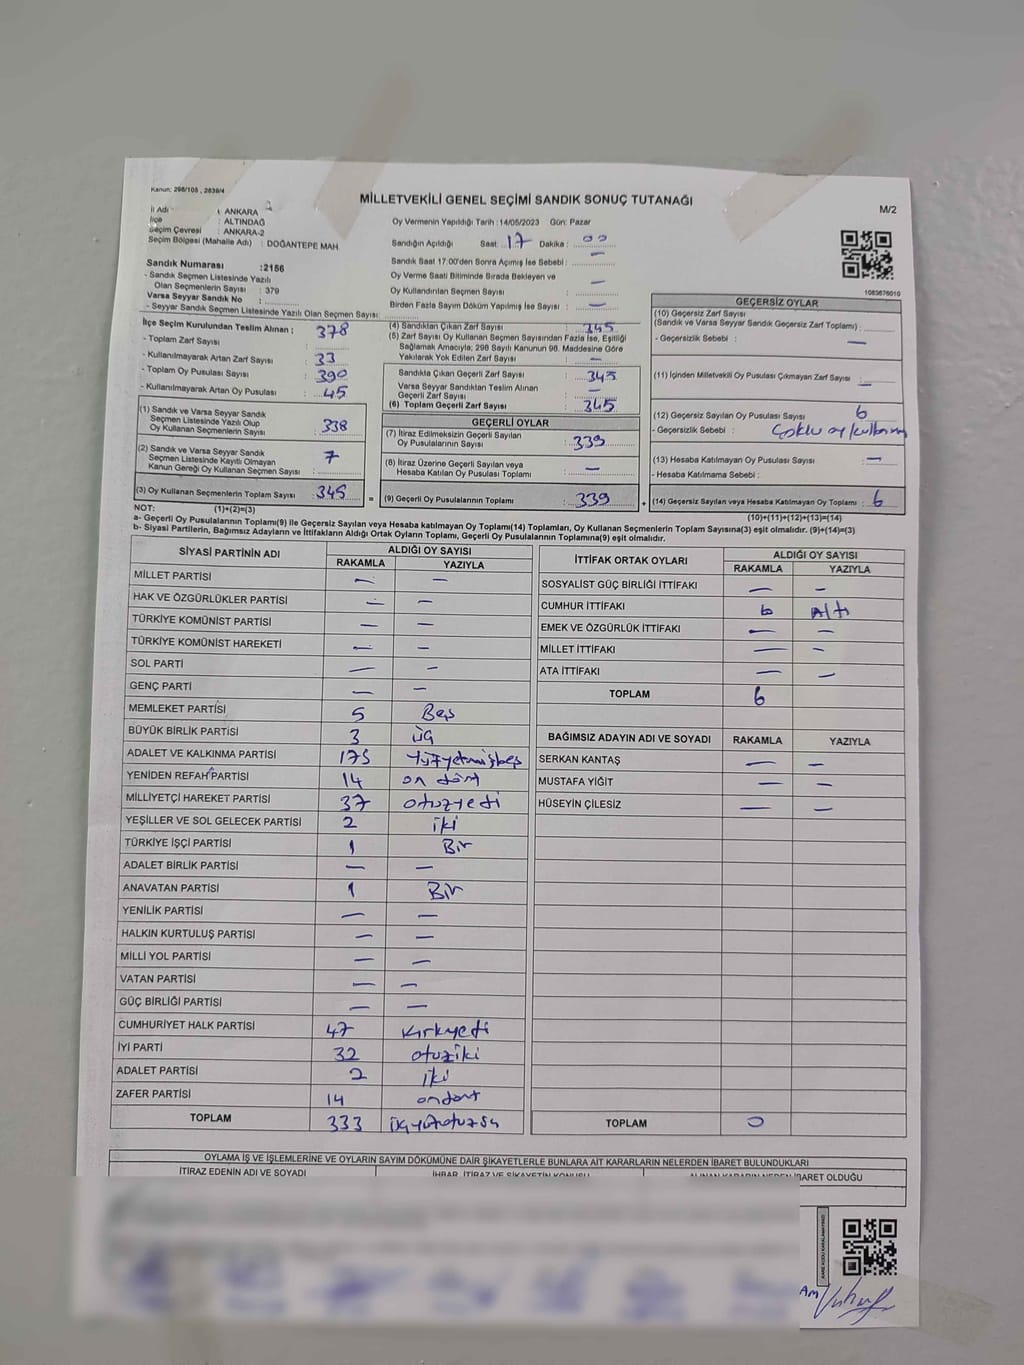 Kanun: 298/105 , 2839/4
MİLLETVEKİLİ GENEL SEÇİMİ SANDIK SONUÇ TUTANAĞI
M/2
İl Adı : ANKARA
İlçe : ALTINDAĞ
Seçim Çevresi : ANKARA-2
Seçim Bölgesi (Mahalle Adı) : DOĞANTEPE MAH.
Oy Vermenin Yapıldığı Tarih : 14/05/2023 Gün: Pazar
Sandığın Açıldığı Saat: 17 Dakika : 00
Sandık Saat 17:00'den Sonra Açılmış İse Sebebi : —
Oy Verme Saati Bitiminde Sırada Bekleyen ve
Oy Kullandırılan Seçmen Sayısı : —
Birden Fazla Sayım Döküm Yapılmış İse Sayısı : —
Sandık Numarası :2156
- Sandık Seçmen Listesinde Yazılı
Olan Seçmenlerin Sayısı : 379
Varsa Seyyar Sandık No :
- Seyyar Sandık Seçmen Listesinde Yazılı Olan Seçmen Sayısı:
İlçe Seçim Kurulundan Teslim Alınan ;
- Toplam Zarf Sayısı : 378
- Kullanılmayarak Artan Zarf Sayısı : 33
- Toplam Oy Pusulası Sayısı : 390
- Kullanılmayarak Artan Oy Pusulası : 45
(1) Sandık ve Varsa Seyyar Sandık
Seçmen Listesinde Yazılı Olup
Oy Kullanan Seçmenlerin Sayısı : 338
(2) Sandık ve Varsa Seyyar Sandık
Seçmen Listesinde Kayıtlı Olmayan
Kanun Gereği Oy Kullanan Seçmen Sayısı : 7
(3) Oy Kullanan Seçmenlerin Toplam Sayısı : 345 =
(4) Sandıktan Çıkan Zarf Sayısı : 345
(5) Zarf Sayısı Oy Kullanan Seçmen Sayısından Fazla İse, Eşitliği
Sağlamak Amacıyla; 298 Sayılı Kanunun 98. Maddesine Göre
Yakılarak Yok Edilen Zarf Sayısı : —
Sandıkta Çıkan Geçerli Zarf Sayısı : 345
Varsa Seyyar Sandıktan Teslim Alınan
Geçerli Zarf Sayısı : —
(6) Toplam Geçerli Zarf Sayısı : 345
GEÇERLİ OYLAR
(7) İtiraz Edilmeksizin Geçerli Sayılan
Oy Pusulalarının Sayısı : 339
(8) İtiraz Üzerine Geçerli Sayılan veya
Hesaba Katılan Oy Pusulası Toplamı : —
(9) Geçerli Oy Pusulalarının Toplamı : 339 +
1083676010
GEÇERSİZ OYLAR
(10) Geçersiz Zarf Sayısı
(Sandık ve Varsa Seyyar Sandık Geçersiz Zarf Toplamı) :
- Geçersizlik Sebebi : —
(11) İçinden Milletvekili Oy Pusulası Çıkmayan Zarf Sayısı : —
(12) Geçersiz Sayılan Oy Pusulası Sayısı : 6
- Geçersizlik Sebebi : Çoklu oy kullanım
(13) Hesaba Katılmayan Oy Pusulası Sayısı : —
- Hesaba Katılmama Sebebi :
(14) Geçersiz Sayılan veya Hesaba Katılmayan Oy Toplamı : 6
NOT: (1)+(2)=(3) (10)+(11)+(12)+(13)=(14)
a- Geçerli Oy Pusulalarının Toplamı(9) ile Geçersiz Sayılan veya Hesaba katılmayan Oy Toplamı(14) Toplamları, Oy Kullanan Seçmenlerin Toplam Sayısına(3) eşit olmalıdır. (9)+(14)=(3)
b- Siyasi Partilerin, Bağımsız Adayların ve İttifakların Aldığı Ortak Oyların Toplamı, Geçerli Oy Pusulalarının Toplamına(9) eşit olmalıdır.
SİYASİ PARTİNİN ADI ALDIĞI OY SAYISI
RAKAMLA YAZIYLA
MİLLET PARTİSİ — —
HAK VE ÖZGÜRLÜKLER PARTİSİ — —
TÜRKİYE KOMÜNİST PARTİSİ — —
TÜRKİYE KOMÜNİST HAREKETİ — —
SOL PARTİ — —
GENÇ PARTİ — —
MEMLEKET PARTİSİ 5 Beş
BÜYÜK BİRLİK PARTİSİ 3 üç
ADALET VE KALKINMA PARTİSİ 175 Yüzyetmişbeş
YENİDEN REFAH PARTİSİ 14 on dört
MİLLİYETÇİ HAREKET PARTİSİ 37 otuzyedi
YEŞİLLER VE SOL GELECEK PARTİSİ 2 iki
TÜRKİYE İŞÇİ PARTİSİ 1 Bir
ADALET BİRLİK PARTİSİ — —
ANAVATAN PARTİSİ 1 Bir
YENİLİK PARTİSİ — —
HALKIN KURTULUŞ PARTİSİ — —
MİLLİ YOL PARTİSİ — —
VATAN PARTİSİ — —
GÜÇ BİRLİĞİ PARTİSİ — —
CUMHURİYET HALK PARTİSİ 47 kırkyedi
İYİ PARTİ 32 otuziki
ADALET PARTİSİ 2 iki
ZAFER PARTİSİ 14 ondört
TOPLAM 333 üçyüzotuzüç
İTTİFAK ORTAK OYLARI ALDIĞI OY SAYISI
RAKAMLA YAZIYLA
SOSYALİST GÜÇ BİRLİĞİ İTTİFAKI — —
CUMHUR İTTİFAKI 6 Altı
EMEK VE ÖZGÜRLÜK İTTİFAKI — —
MİLLET İTTİFAKI — —
ATA İTTİFAKI — —
TOPLAM 6
BAĞIMSIZ ADAYIN ADI VE SOYADI RAKAMLA YAZIYLA
SERKAN KANTAŞ — —
MUSTAFA YİĞİT — —
HÜSEYİN ÇİLESİZ — —
TOPLAM 0
OYLAMA İŞ VE İŞLEMLERİNE VE OYLARIN SAYIM DÖKÜMÜNE DAİR ŞİKAYETLERLE BUNLARA AİT KARARLARIN NELERDEN İBARET BULUNDUKLARI
İTİRAZ EDENİN ADI VE SOYADI İHBAR, İTİRAZ VE ŞİKAYETİN KONUSU ALINAN KARARIN NEDEN İBARET OLDUĞU